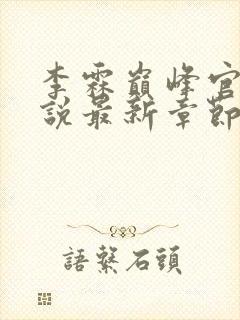 李霖巔峰官
說最新章節
語繫石頭